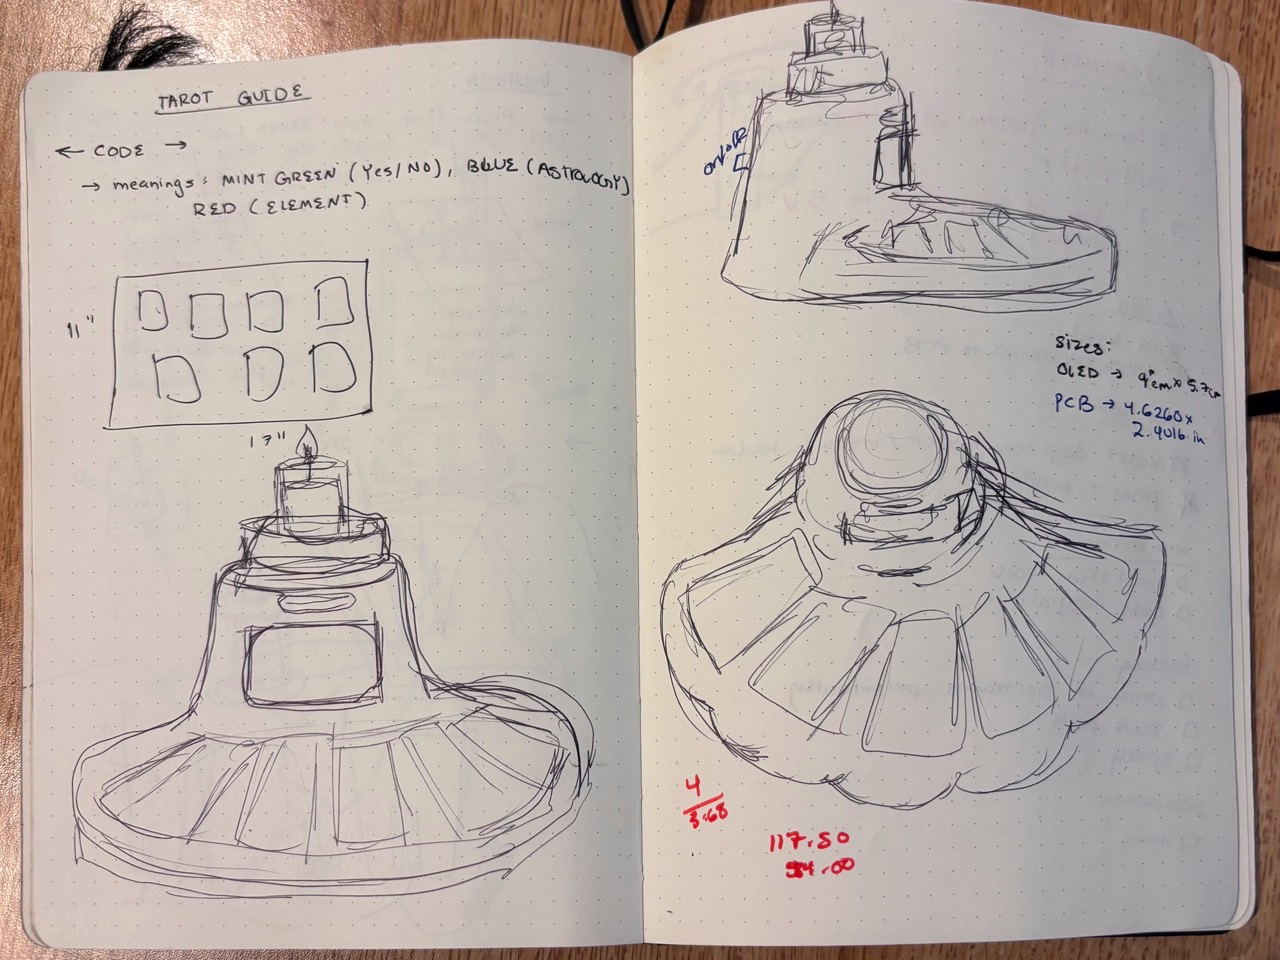 TAROT GUIDE
← CODE →
→ meanings: MINT GREEN (Yes/No), BLUE (ASTROLOGY)
RED (ELEMENT)
11"
17"
on/off
sizes:
OLED → 9cm x 5.7cm
PCB → 4.6260 x
2.4016 in
4
3.68
117.50
54.00